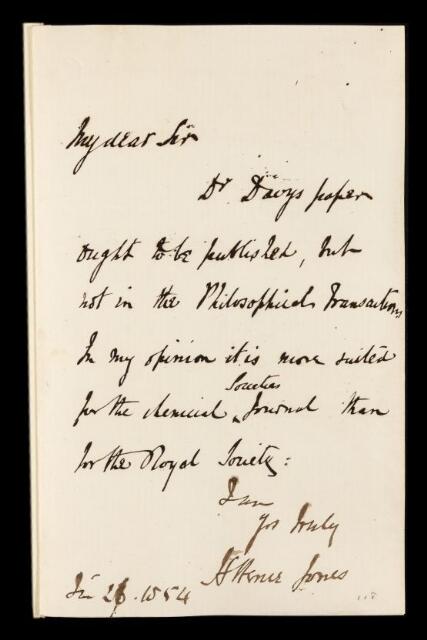 My dear Sir
Dr Davys paper
ought to be published, but
not in the Philosophical Transactions
In my opinion it is more suited
Societies
for the chemical Journal than
for the Royal Society:
I am
yrs truly
H Bence Jones
26. 1854